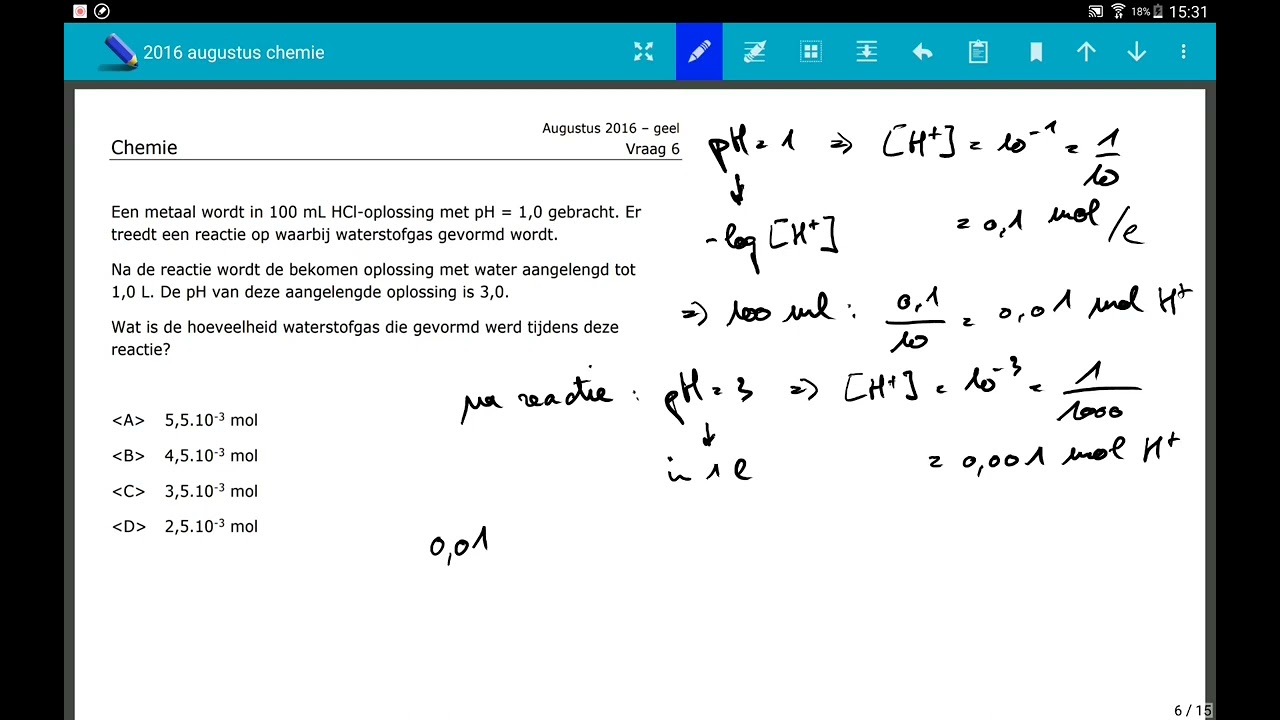 18% 15:31
2016 augustus chemie
Augustus 2016 – geel
Chemie
Vraag 6
Een metaal wordt in 100 mL HCl-oplossing met pH = 1,0 gebracht. Er
treedt een reactie op waarbij waterstofgas gevormd wordt.
Na de reactie wordt de bekomen oplossing met water aangelengd tot
1,0 L. De pH van deze aangelengde oplossing is 3,0.
Wat is de hoeveelheid waterstofgas die gevormd werd tijdens deze
reactie?
<A> 5,5.10⁻³ mol
<B> 4,5.10⁻³ mol
<C> 3,5.10⁻³ mol
<D> 2,5.10⁻³ mol
pH = 1 ⇒ [H⁺] = 10⁻¹ = 1/10
↓
-log [H⁺]
= 0,1 mol/l
⇒ 100 ml : 0,1/10 = 0,01 mol H⁺
na reactie : pH = 3 ⇒ [H⁺] = 10⁻³ = 1/1000
↓
in 1 l
= 0,001 mol H⁺
0,01
6 / 15